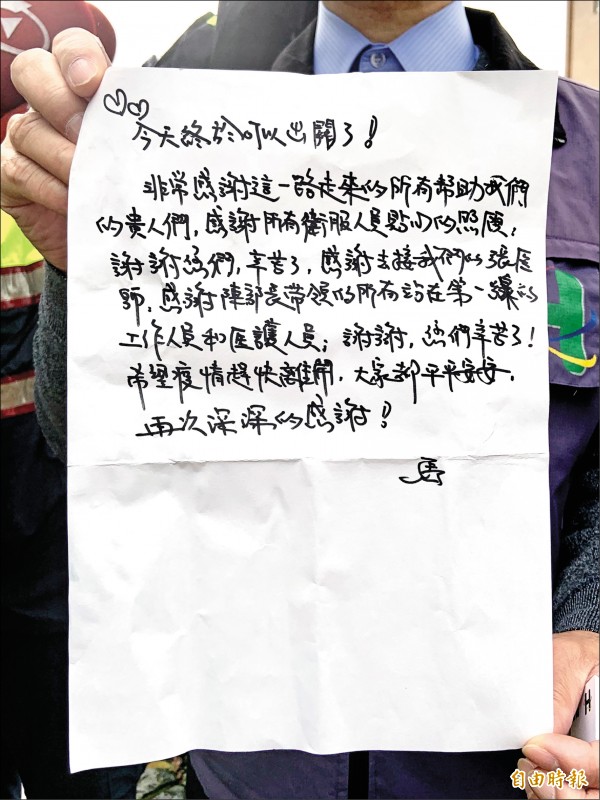 今天終於可以出關了!
非常感謝這一路走來的所有幫助我們
的貴人們,感謝所有衛服人員點心的照顧,
謝謝您們,辛苦了,感謝去接我們的張医
師,感謝陳部長帶領的所有站在第一線的
工作人員和医護人員;謝謝,您們辛苦了!
希望疫情趕快離開,大家都平平安安,
再次深深的感謝!
馬
自由時報